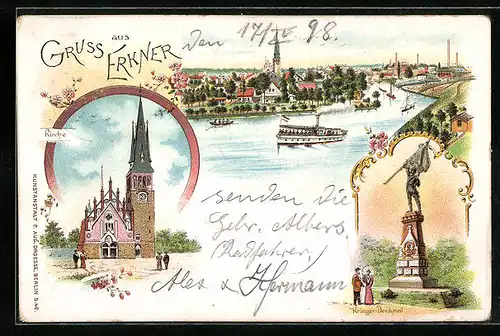 GRUSS aus ERKNER
Den 17/IV 98.
Kirche
senden die
Gebr. Albers.
(Radfahrer)
Alex & Hermann
Krieger-Denkmal
KUNSTANSTALT P. AUG. DROESSE, BERLIN S.42.